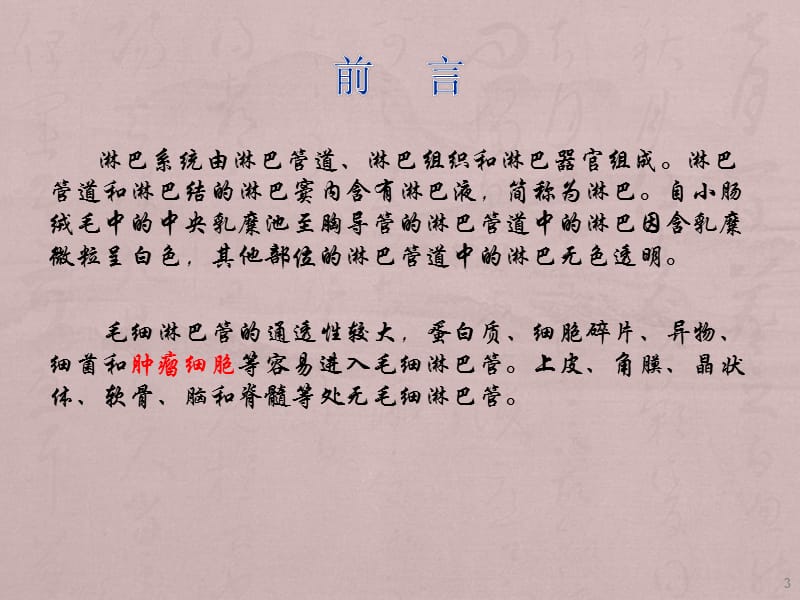 前 言
淋巴系统由淋巴管道、淋巴组织和淋巴器官组成。淋巴
管道和淋巴结的淋巴窦内含有淋巴液，简称为淋巴。自小肠
绒毛中的中央乳糜池至胸导管的淋巴管道中的淋巴因含乳糜
微粒呈白色，其他部位的淋巴管道中的淋巴无色透明。
毛细淋巴管的通透性较大，蛋白质、细胞碎片、异物、
细菌和肿瘤细胞等容易进入毛细淋巴管。上皮、角膜、晶状
体、软骨、脑和脊髓等处无毛细淋巴管。
3